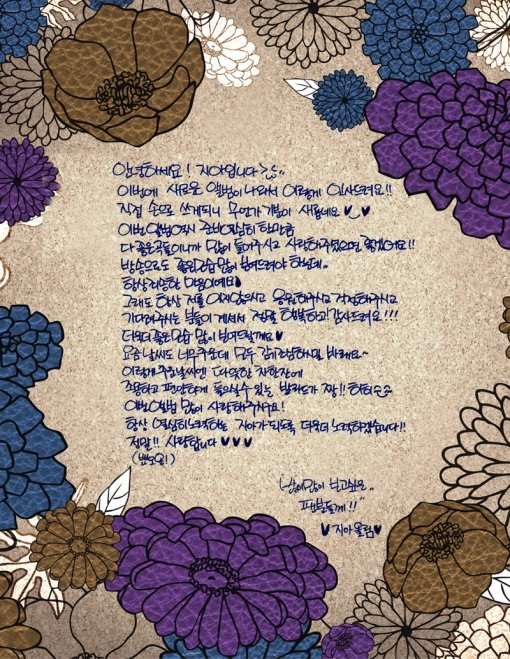 안녕하세요! 지아입니다 >_<..
이번에 새로운 앨범이 나와서 이렇게 인사드려요!!
직접 손으로 쓰게되니 무언가 기분이 새롭네요 ♥◡♥
이번앨범 역시 준비 열심히 한만큼
다 좋은곡들이니까 많이 들어주시고 사랑해주셨으면 좋겠어요!!
방송으로도 좋은모습 많이 보여드려야 하는데..
항상 죄송한 마음이에요♥
그래도 항상 저를 잊지않으시고 응원해주시고 걱정해주시고
기다려주시는 분들이 계셔서 정말 행복하고 감사드려요!!!
더욱더 좋은모습 많이 보여드릴께요 ♥
요즘 날씨도 너무추운데 모두 감기조심하시길 바래요~
이렇게 추운날씨엔 다운한 차한잔에
조용하고 편안하게 들으실수 있는 발라드가 짱!! 히히
이번앨범 많이 사랑해주시구요!
항상 열심히노력하는 지아가 되도록 더욱더 노력하겠습니다!!
정말!! 사랑합니다 ♥♥♥
(뿅!)
많이많이 보고싶은..
팬분들께!!
♥지아올림♥